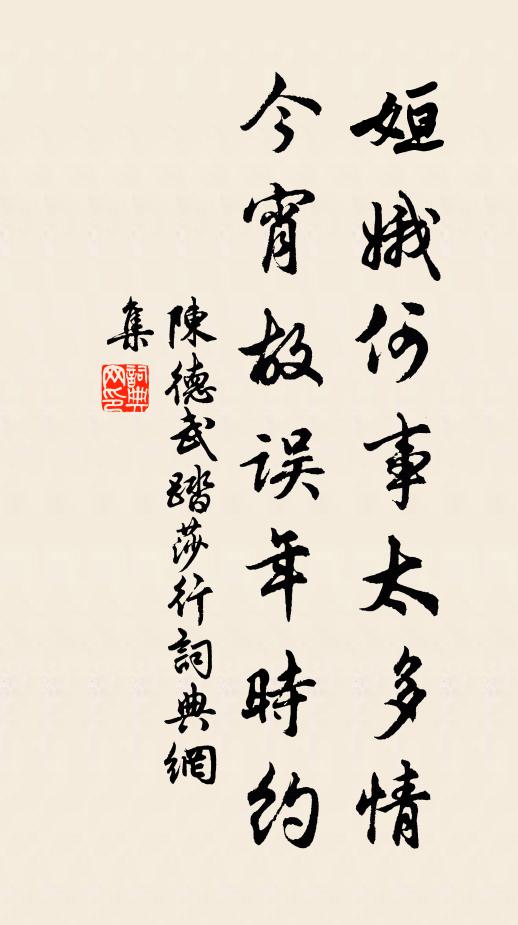 姮娥何事太多情
今宵故误年時约
陳德武踏莎行詞典網
集
詞典网印